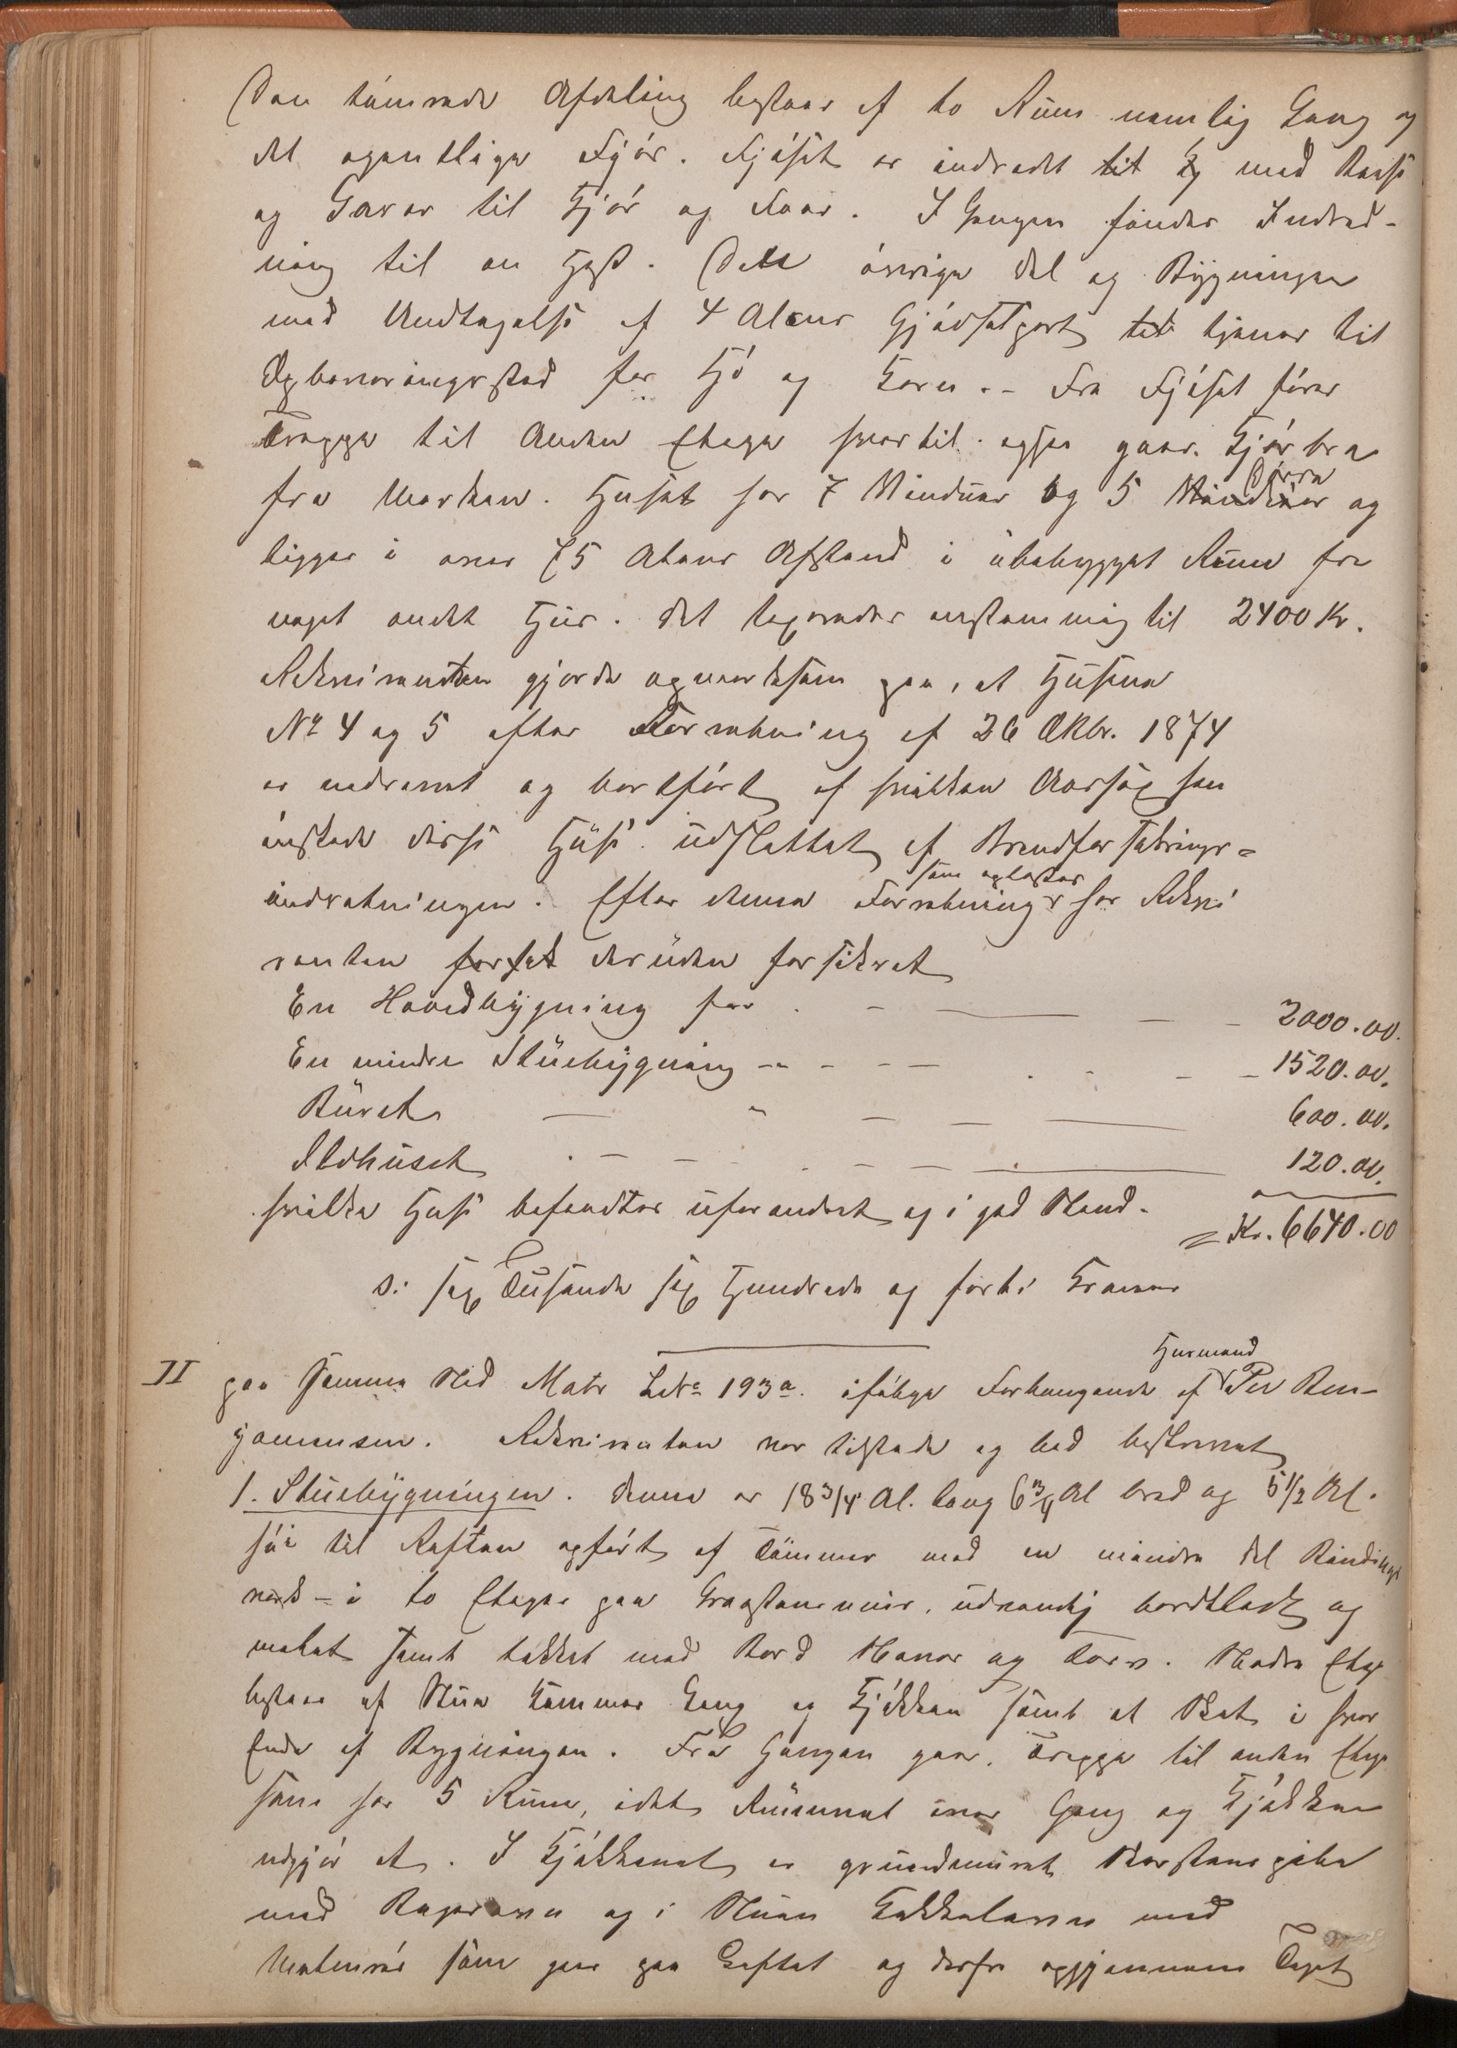 Den tømrede Afdeling bestaar af to Rum nemlig Gang og
det egentlige Fjøs. Fjøset er indredet til med Baase
og Garer til Kjør og Faar. I Gangen findes Indred-
ning til en Hest. Den øvrige Del af Bygningen
med Undtagelse af 4 Alens Gjødselgort tjener til
Opbevaringssted for Hø og Korn. - Fra Fjøset fører
Trappe til Anden Etage hvortil ogsaa gaar Kjørbro
fra Marken. Huset har 7 Vinduer og 5 Vinduer Dørre og
ligger i over 75 Alens Afstand i ubebygget Rum fra
noget andet Hus. Det taxeredes enstemmig til 2400 Kr.
Rekvirenten gjorde opmærksom paa, at Husene
No 4 og 5 efter Forretning af 26 Oktbr. 1874
er nedrevet og bortført af hvilken Aarsag han
ønskede disse Huse udslettet af Brandforsikrings-
indretningen. Efter denne Forretning som oplæstes har Rekvi
renten forsat desuden forsikret
En Hovedbygning for - - 2000.00.
En mindre Stuebygning - - - 1520.00.
Buret - " - 600.00.
Ildhuset - - - 120.00.
hvilke Huse befandtes uforandret og i god Stand. = Kr. 6640.00
s: sex Tusinde sex Hundrede og førti Kroner
II paa samme Sted Matr Litr 193a. ifølge Forlangende af Husmand Per Ben-
jamensen. Rekvirenten var tilstede og bad beskrevet
1. Stuebygningen. denne er 18 3/4 Al. lang 6 3/4 Al bred og 5 1/2 Al.
høi til Raften opført af Tømmer med en mindre Del Bindings
verk - i to Etager paa Graastensmur, udvendig bordklædt og
malet samt tækket med Bord Næver og Torv. Nedre Etage
bestaar af Stue Kammer Gang og Kjøkken samt et Skot i hver
Ende af Bygningen. Fra Gangen gaar Trappe til anden Etage
som har 5 Rum, idet Rummet over Gang og Kjøkken
udgjør et. I Kjøkkenet er grundmuret Skorstenspibe
med Bagerovn og i Stuen Kakkelovn med
som gaar paa Loftet og derfra opgjennem Taget